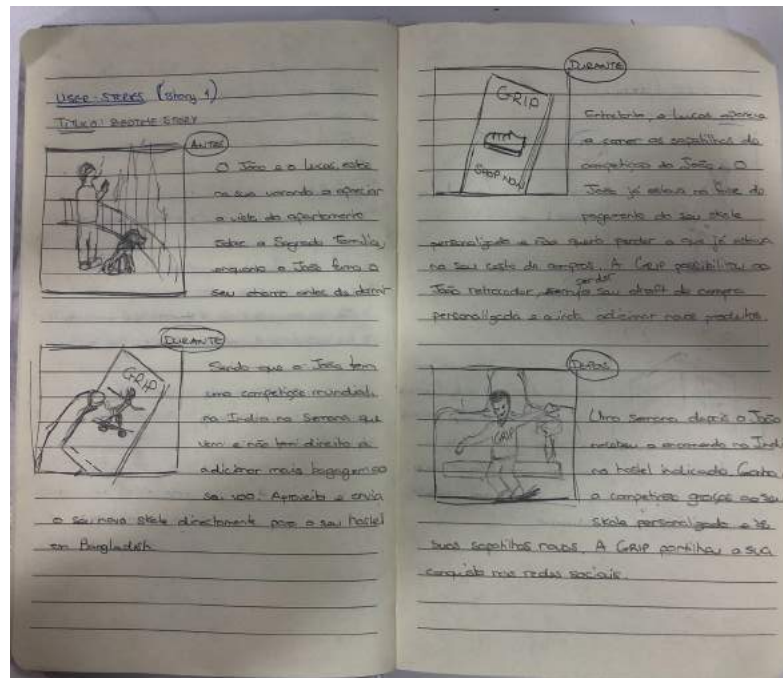 USER-STORIES (Story 1)
TITULO: BEDTIME STORY
ANTES
O João e o Lucas, estão
na sua varanda a apreciar
a vista do apartamento
sobre a Sagrada Família,
enquanto o João fuma o
seu charro antes de dormir
DURANTE
GRIP
Sendo que o João tem
uma competição mundial
na India na Semana que
vem e não tem direito a
adicionar mais bagagem ao
seu voo. Aproveita e envia
o seu novo skate directamente para o seu hostel
em Bangladesh
DURANTE
GRIP
SHOP NOW
Entretanto, o Lucas aparece
a comer as sapatilhas da
competição do João. O
João já estava na fase do
pagamento do seu skate
personalizado e não queria perder o que já estava
no seu cesto de compras. A GRIP possibilitou ao
João retroceder, sem perder o seu draft de compra
personalizada e ainda adicionar novos produtos.
DEPOIS
GRIP
Uma semana depois o João
recebeu a encomenda na Índia
no hostel indicado. Ganha
a competição graças ao seu
skate personalizado e às
suas sapatilhas novas. A GRIP partilhou a sua
conquista nas redes sociais.